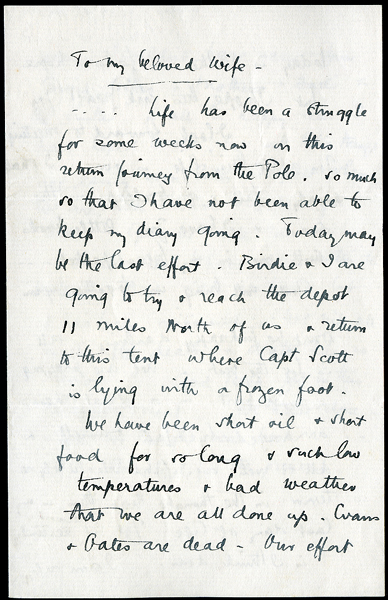 To my beloved Wife -
.... Life has been a struggle
for some weeks now on this
return journey from the Pole. so much
so that I have not been able to
keep my diary going. Today may
be the last effort. Birdie & I are
going to try & reach the depot
11 miles North of us & return
to this tent where Capt Scott
is lying with a frozen foot.
We have been short oil & short
food for so long & such low
temperatures & bad weather
that we are all done up. Evans
& Oates are dead - Our effort